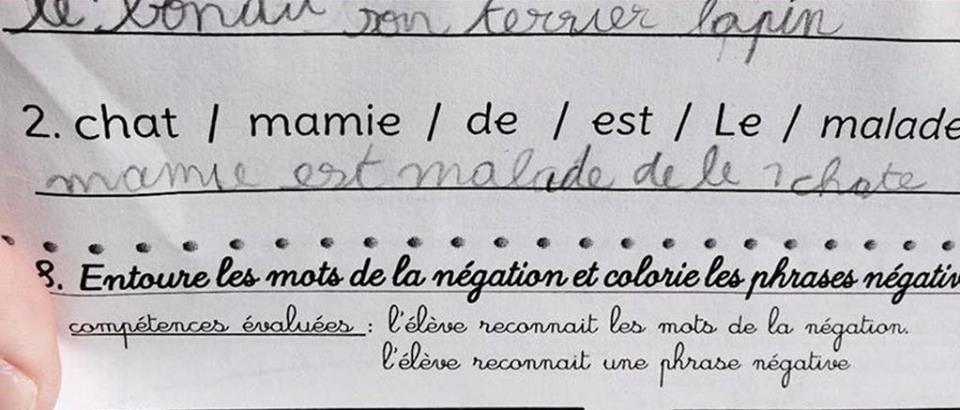 le son terrier lapin
2. chat / mamie / de / est / Le / malade
mamie est malade de le chate
8. Entoure les mots de la négation et colorie les phrases négativ
compétences évaluées : l'élève reconnait les mots de la négation.
l'élève reconnait une phrase négative